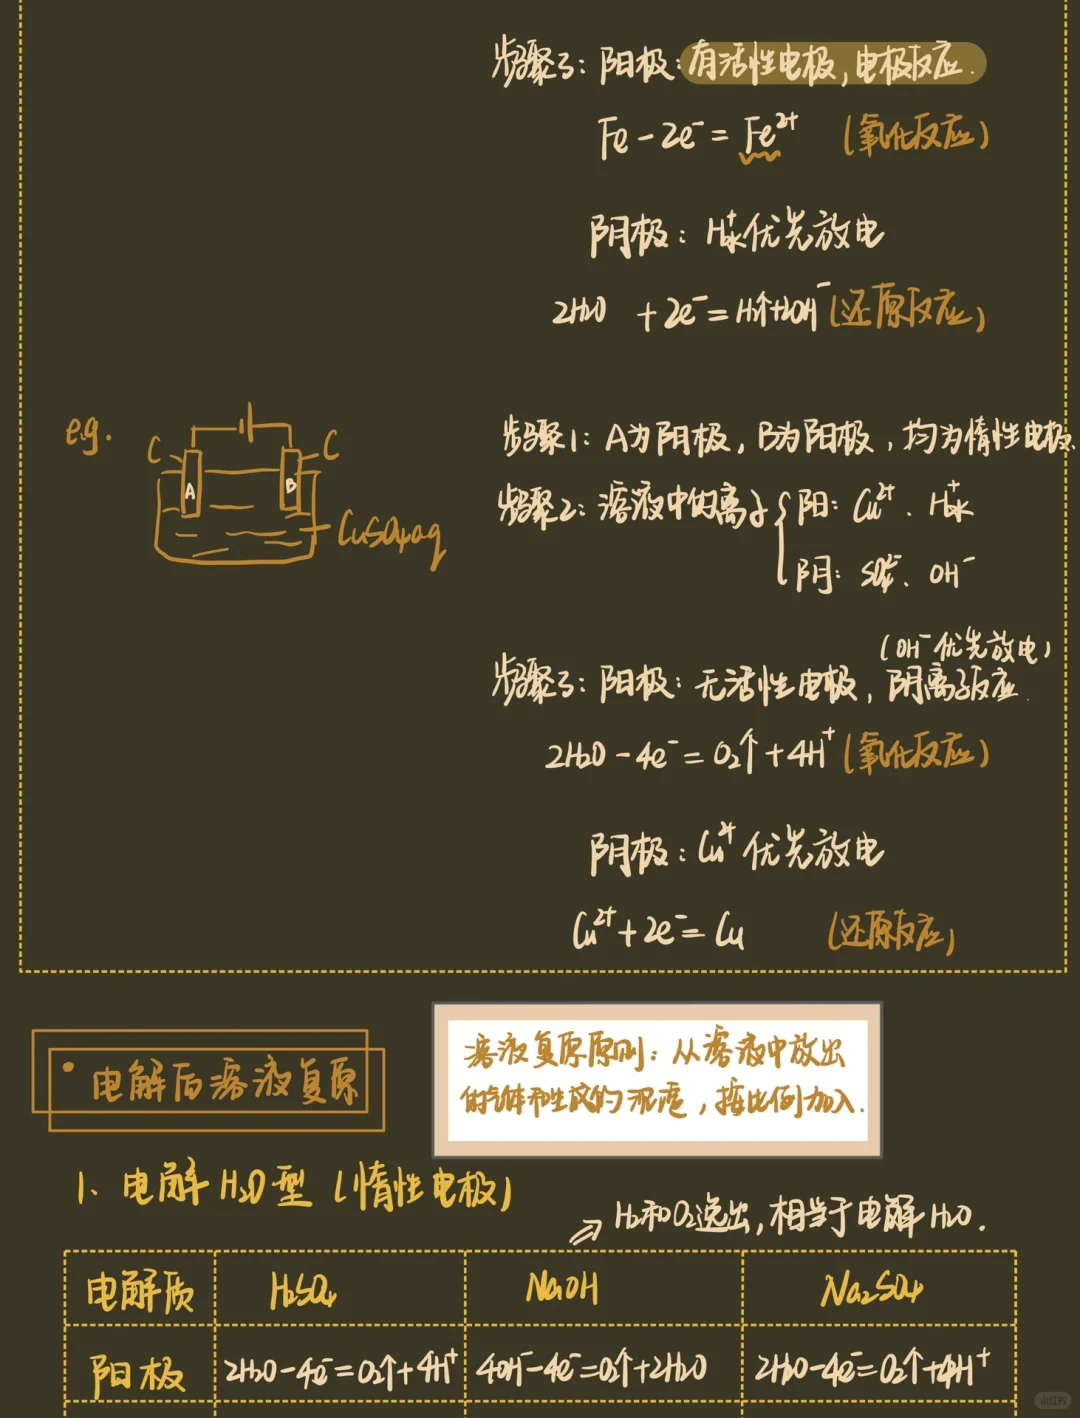 步骤3：阳极：有活性电极，电极反应.
Fe-2e⁻=Fe²⁺ （氧化反应）
阴极：H⁺水优先放电
2H₂O +2e⁻=H₂↑+2OH⁻（还原反应）
e.g.
C C
A B
CuSO₄aq
步骤1：A为阴极，B为阳极，均为惰性电极.
步骤2：溶液中的离子 阳：Cu²⁺、H⁺水
阴：SO₄²⁻、OH⁻
（OH⁻优先放电）
步骤3：阳极：无活性电极，阴离子反应.
2H₂O-4e⁻=O₂↑+4H⁺（氧化反应）
阴极：Cu²⁺优先放电
Cu²⁺+2e⁻=Cu （还原反应）
·电解后溶液复原
溶液复原原则：从溶液中放出
的气体和生成的沉淀，按比例加入.
1、电解H₂O型（惰性电极）
⇒H₂和O₂逸出，相当于电解H₂O.
电解质 H₂SO₄ NaOH Na₂SO₄
阳极 2H₂O-4e⁻=O₂↑+4H⁺ 4OH⁻-4e⁻=O₂↑+2H₂O 2H₂O-4e⁻=O₂↑+4H⁺
小红书